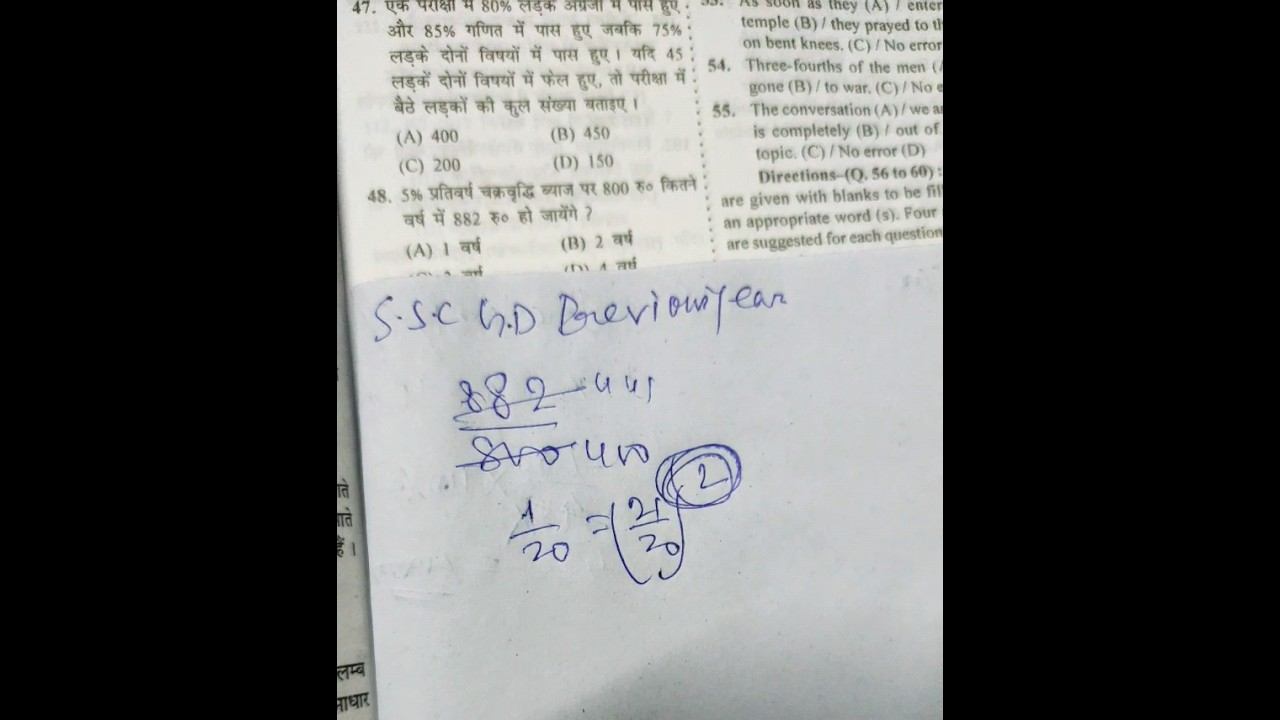 47. एक परीक्षा में 80% लड़के अंग्रेजी में पास हुए
और 85% गणित में पास हुए जबकि 75%
लड़के दोनों विषयों में पास हुए। यदि 45
लड़कें दोनों विषयों में फेल हुए, तो परीक्षा में
बैठे लड़कों की कुल संख्या बताइए।
(A) 400 (B) 450
(C) 200 (D) 150
48. 5% प्रतिवर्ष चक्रवृद्धि ब्याज पर 800 रु० कितने
वर्ष में 882 रु० हो जायेंगे ?
(A) 1 वर्ष (B) 2 वर्ष
(D) 4 वर्ष
53. As soon as they (A) / enter
temple (B) / they prayed to
on bent knees. (C) / No error
54. Three-fourths of the men
gone (B) / to war. (C) / No
55. The conversation (A) / we
is completely (B) / out of
topic. (C) / No error (D)
Directions–(Q. 56 to 60) :
are given with blanks to be
an appropriate word (s). Four
are suggested for each question
S.S.C G.D Previous year
882 441
800 400
1/20 = (21/20) 2